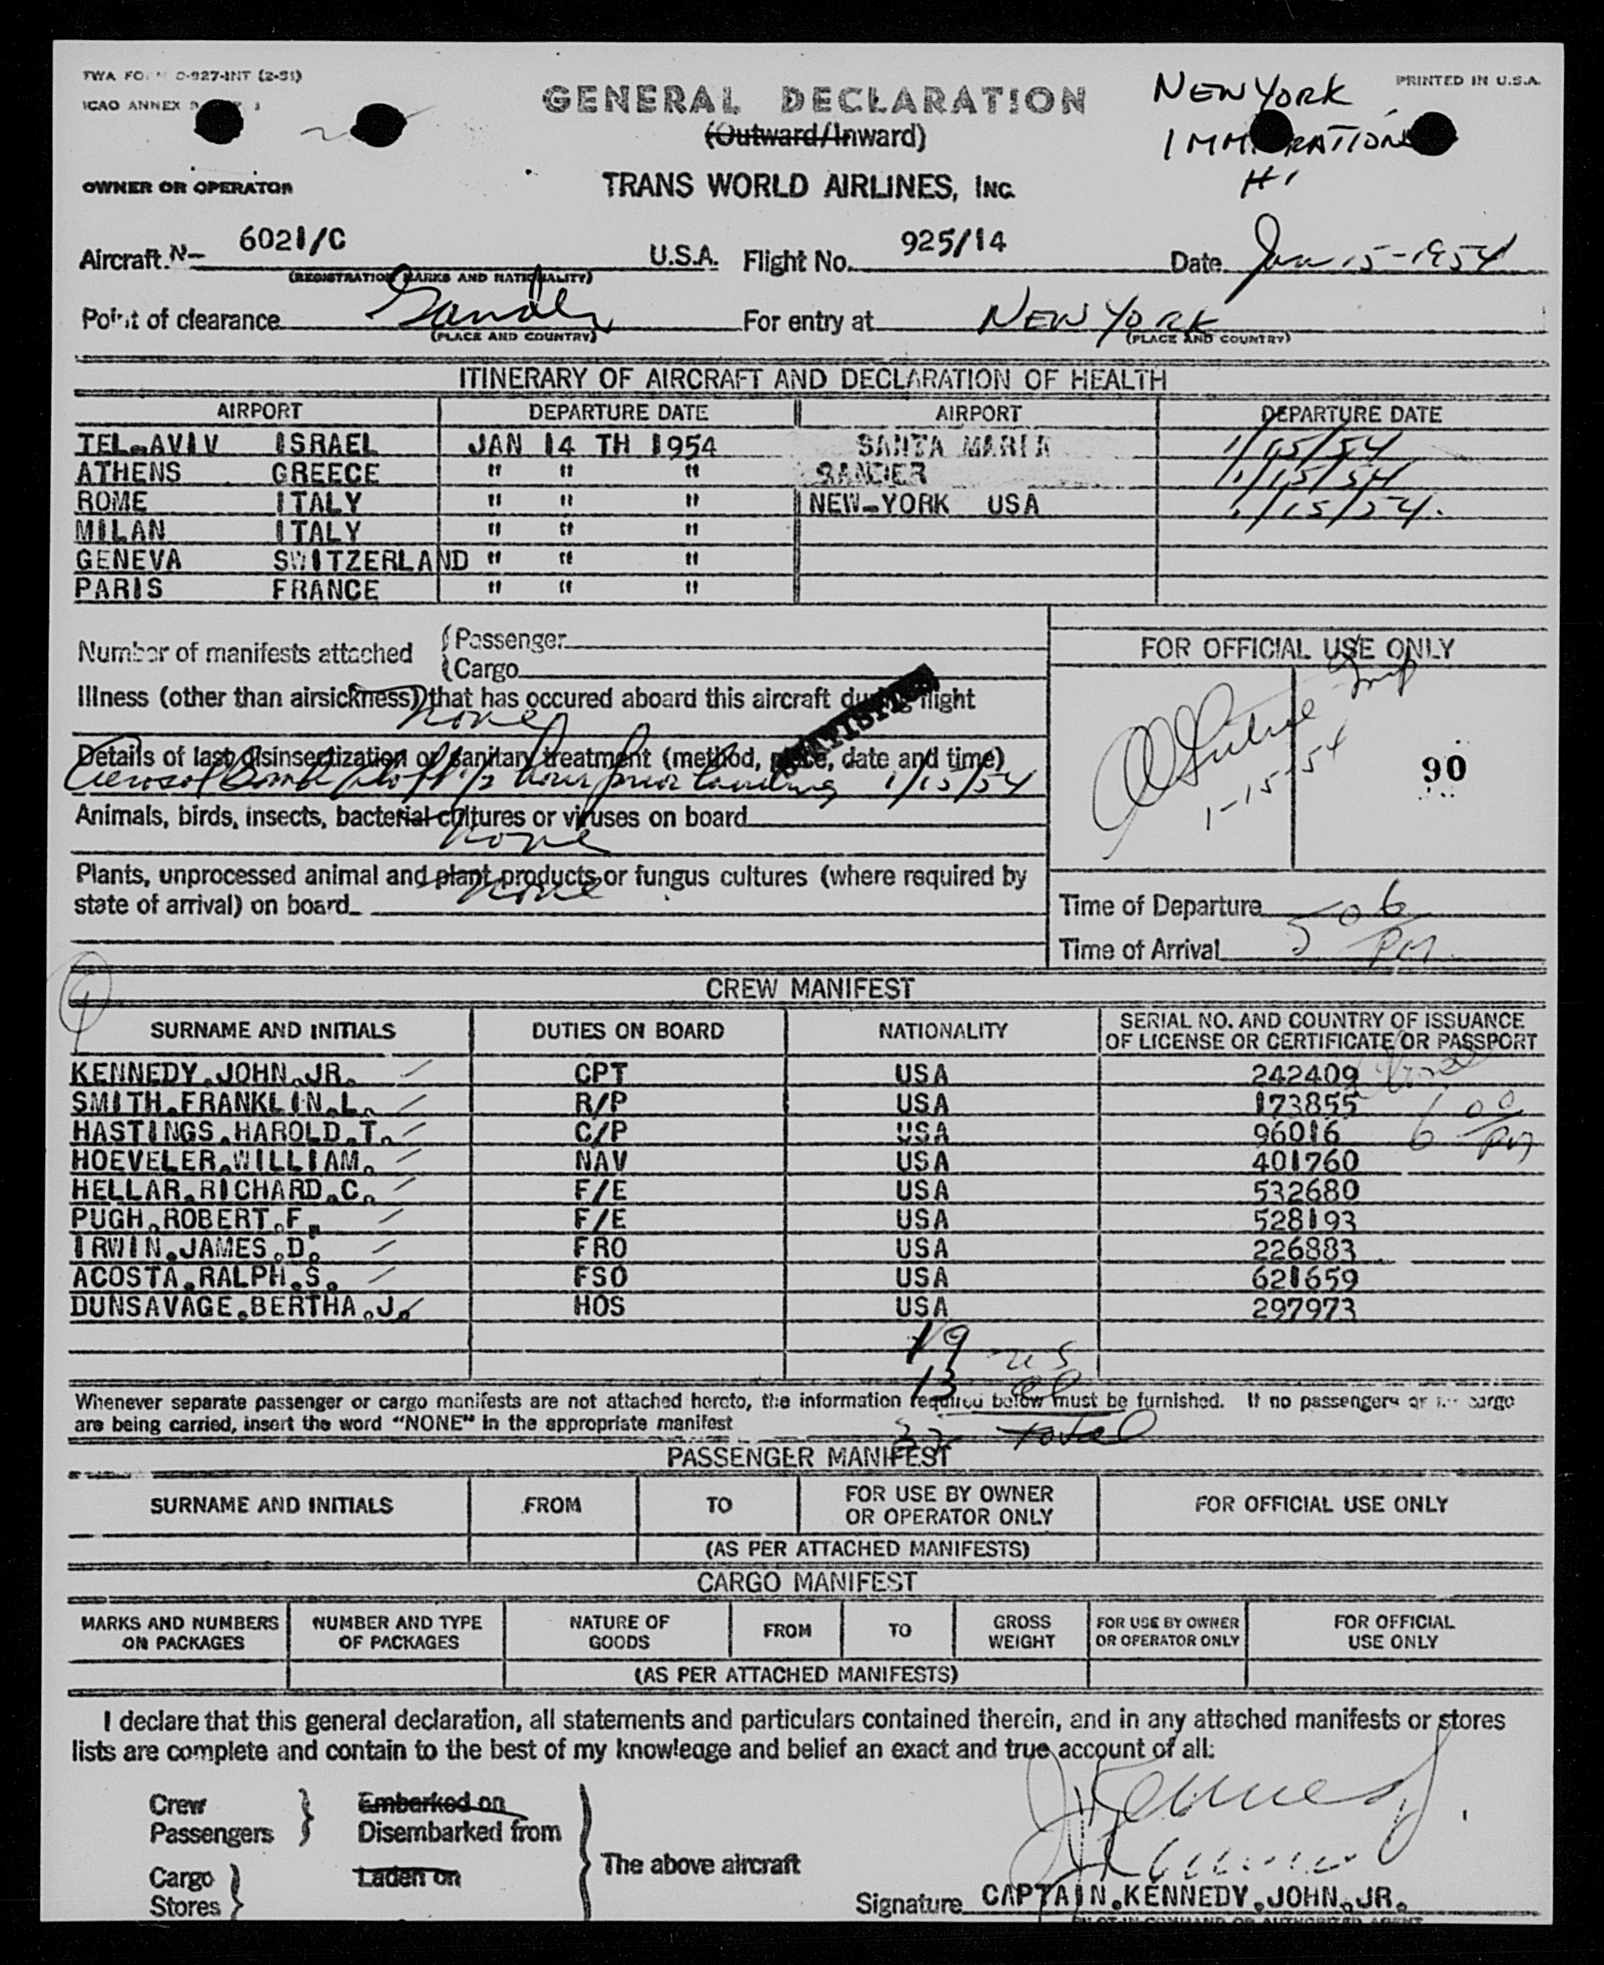 TWA FO C-927-INT (2-51)
ICAO ANNEX 9
PRINTED IN U.S.A.
NEW YORK
IMM RATION
GENERAL DECLARATION
(Outward/Inward)
OWNER OR OPERATOR
TRANS WORLD AIRLINES, INC.
Aircraft N- 6021/C U.S.A. Flight No. 925/14 Date Jan 15-1954
(REGISTRATION MARKS AND NATIONALITY)
Point of clearance Gander For entry at NEW YORK
(PLACE AND COUNTRY) (PLACE AND COUNTRY)
ITINERARY OF AIRCRAFT AND DECLARATION OF HEALTH
AIRPORT DEPARTURE DATE AIRPORT DEPARTURE DATE
TEL-AVIV ISRAEL JAN 14 TH 1954 SANTA MARIA 1/15/54
ATHENS GREECE " " " GANDER 1/15/54
ROME ITALY " " " NEW-YORK USA 1/15/54.
MILAN ITALY " " "
GENEVA SWITZERLAND " " "
PARIS FRANCE " " "
Number of manifests attached (Passenger
(Cargo
Illness (other than airsickness) that has occured aboard this aircraft during flight
none
Details of last disinsectization or sanitary treatment (method, place, date and time)
Aerosol Bomb 1/2 hour prior landing 1/15/54
Animals, birds, insects, bacterial cultures or viruses on board
none
Plants, unprocessed animal and plant products or fungus cultures (where required by
state of arrival) on board
none
FOR OFFICIAL USE ONLY
1-15-54
90
Time of Departure
Time of Arrival 5 06 PM
CREW MANIFEST
SURNAME AND INITIALS DUTIES ON BOARD NATIONALITY SERIAL NO. AND COUNTRY OF ISSUANCE
OF LICENSE OR CERTIFICATE OR PASSPORT
KENNEDY.JOHN.JR. CPT USA 242409
SMITH.FRANKLIN.L. R/P USA 173855
HASTINGS.HAROLD.T. C/P USA 96016
6 00 PM
HOEVELER.WILLIAM. NAV USA 401760
HELLAR.RICHARD.C. F/E USA 532680
PUGH.ROBERT.F. F/E USA 528193
IRWIN.JAMES.D. FRO USA 226883
ACOSTA.RALPH.S. FSO USA 621659
DUNSAVAGE.BERTHA.J. HOS USA 297973
19 US
13 al
32 total
Whenever separate passenger or cargo manifests are not attached hereto, the information required below must be furnished. If no passengers or no cargo
are being carried, insert the word "NONE" in the appropriate manifest
PASSENGER MANIFEST
SURNAME AND INITIALS FROM TO FOR USE BY OWNER OR OPERATOR ONLY FOR OFFICIAL USE ONLY
(AS PER ATTACHED MANIFESTS)
CARGO MANIFEST
MARKS AND NUMBERS ON PACKAGES NUMBER AND TYPE OF PACKAGES NATURE OF GOODS FROM TO GROSS WEIGHT FOR USE BY OWNER OR OPERATOR ONLY FOR OFFICIAL USE ONLY
(AS PER ATTACHED MANIFESTS)
I declare that this general declaration, all statements and particulars contained therein, and in any attached manifests or stores
lists are complete and contain to the best of my knowledge and belief an exact and true account of all:
Crew Embarked on
Passengers Disembarked from
The above aircraft
Cargo Laden on
Stores
J Kennedy
Signature CAPTAIN.KENNEDY.JOHN.JR.
PILOT IN COMMAND OR AUTHORIZED AGENT